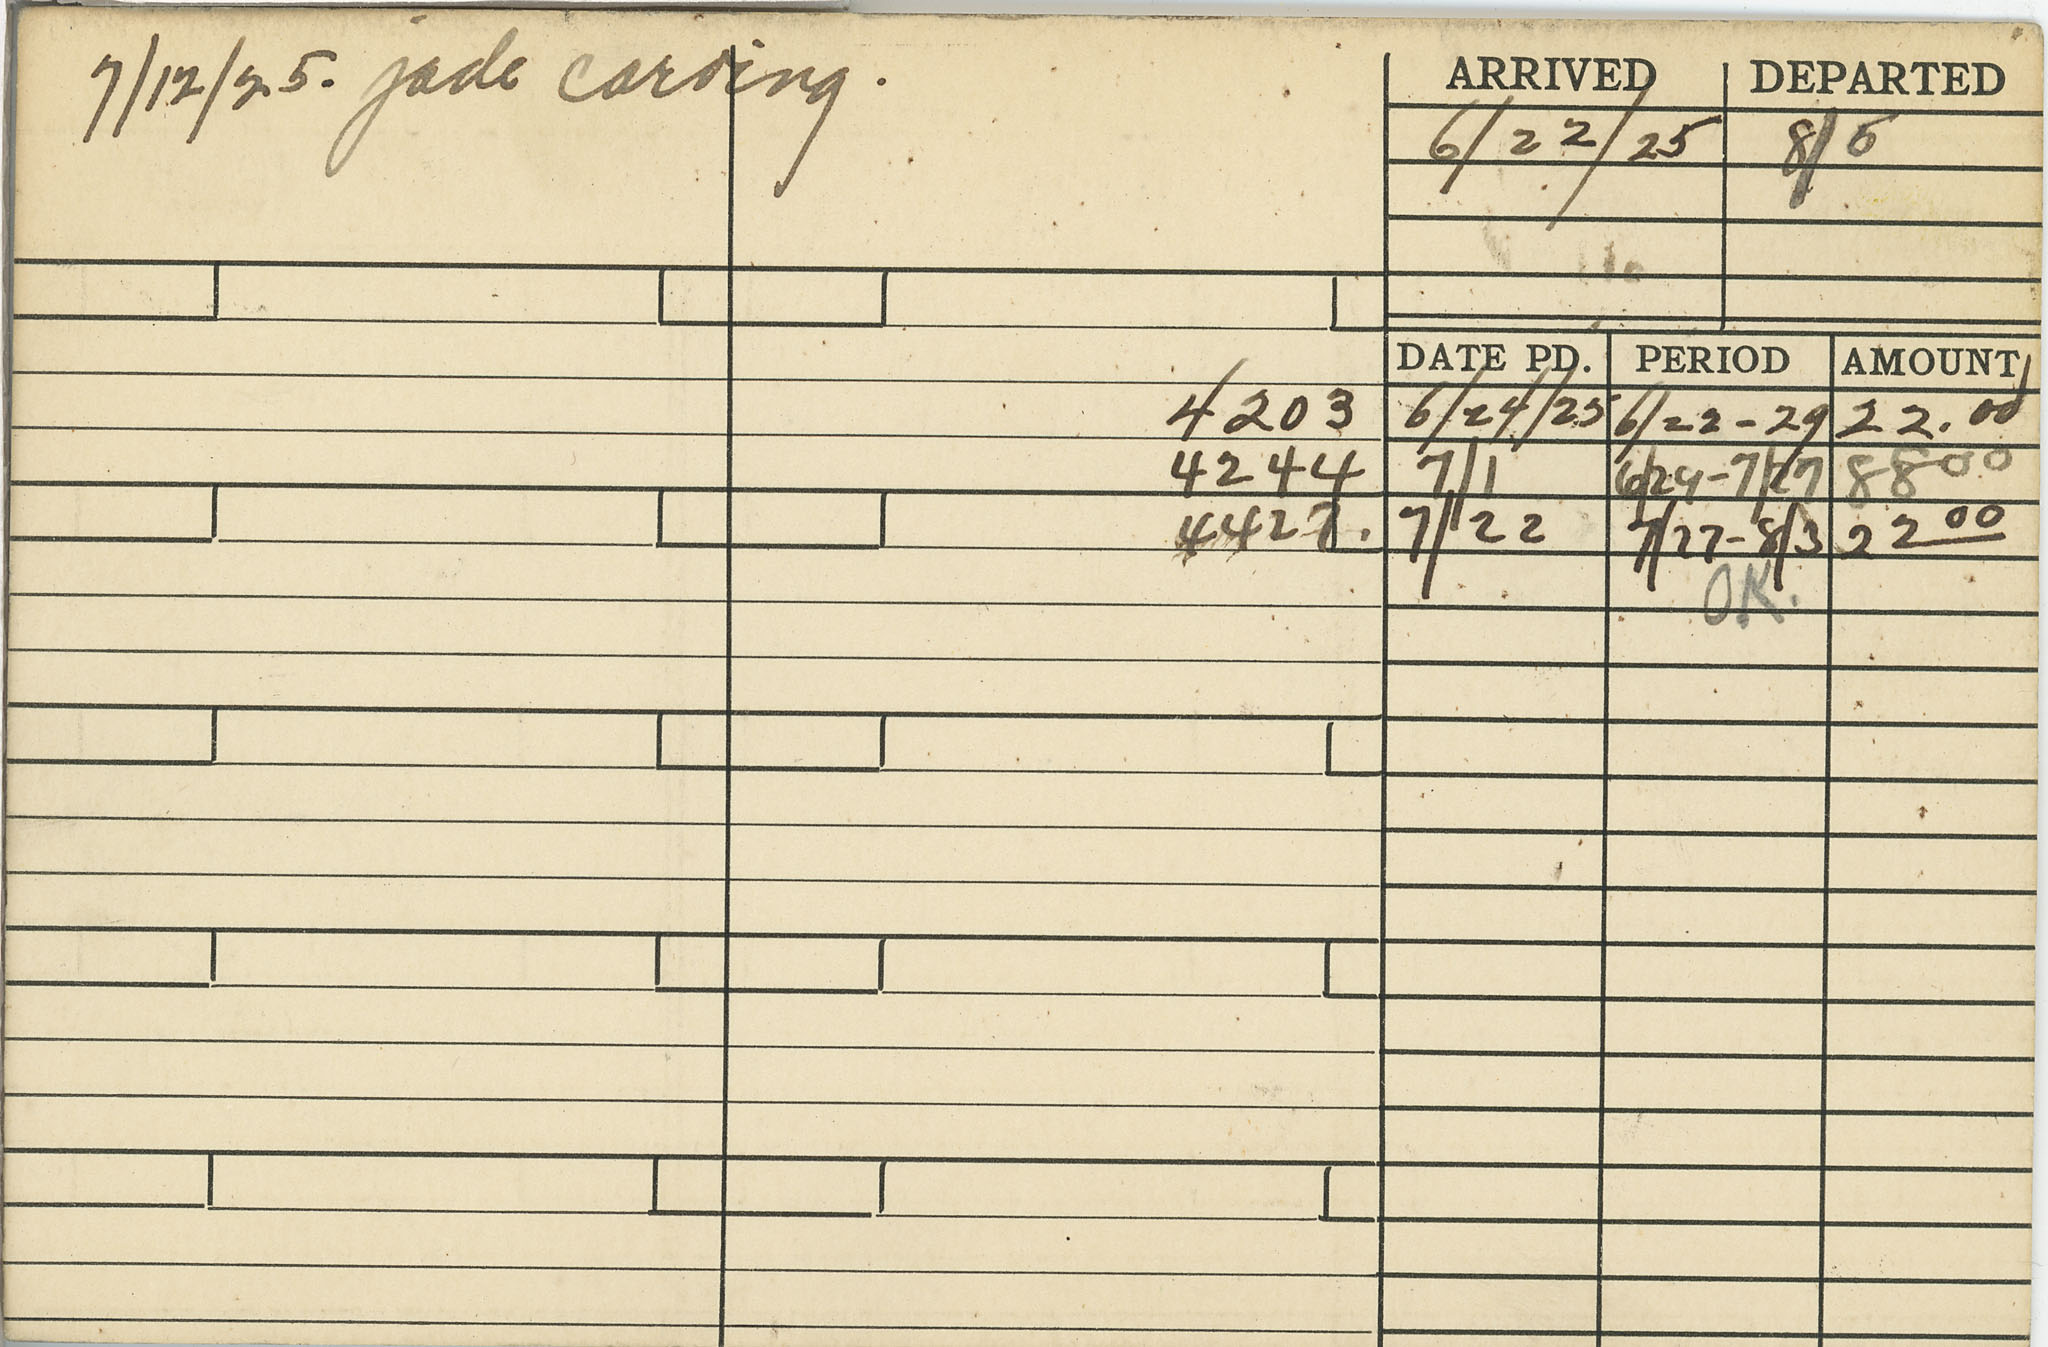 7/12/25. jade carving.
ARRIVED DEPARTED
6/22/25 8/5
DATE PD. PERIOD AMOUNT
4203 6/24/25 6/22-29 22.00
4244 7/1 6/29-7/27 88 00
4427. 7/22 7/27-8/3 22 00
O.K.